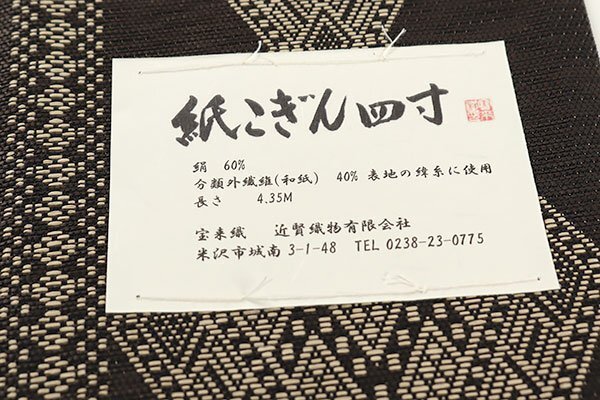 紙こぎん四寸
絹 60%
分類外繊維(和紙) 40% 表地の緯糸に使用
長さ 4.35M
宝来織 近賢織物有限会社
米沢市城南 3-1-48 TEL 0238-23-0775